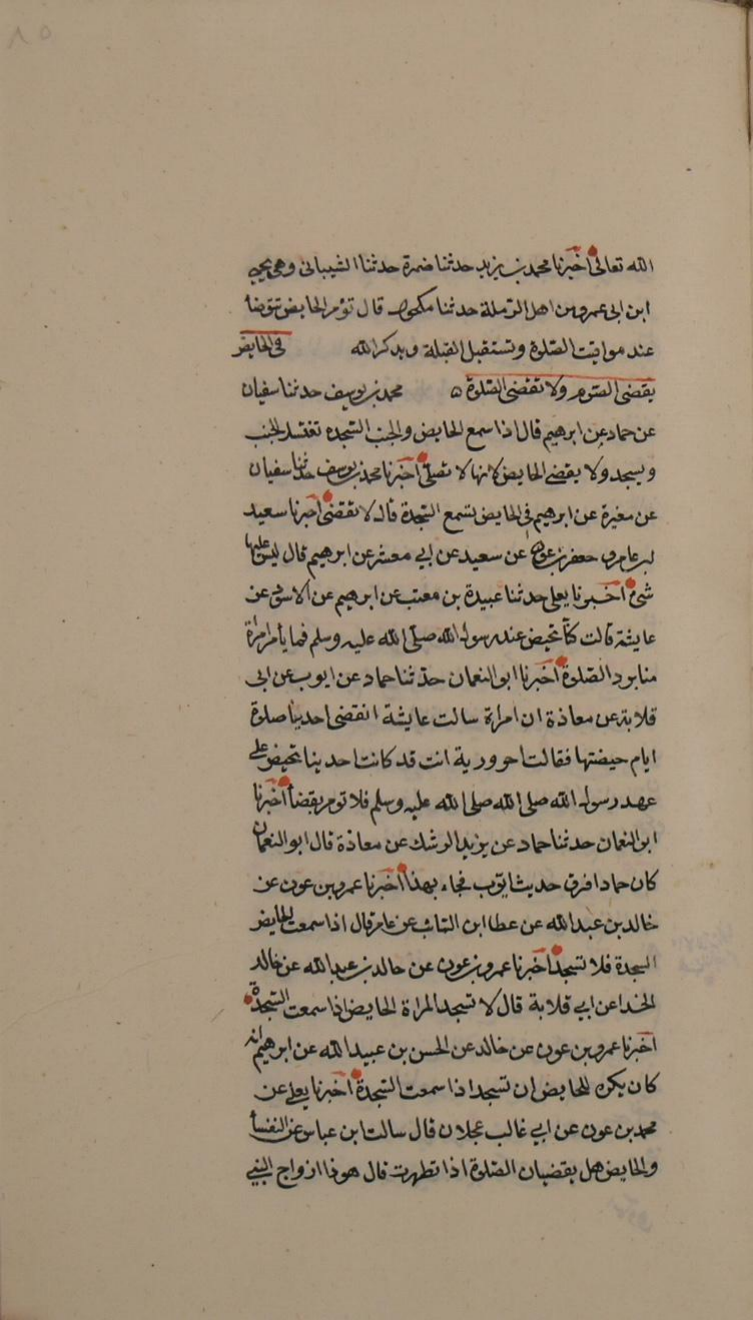 ٨٥
الله تعالى اخبرنا محمد بن يزيد حدثنا ضمرة حدثنا الشيباني وهو يحيى
ابن ابي عمرو من اهل الرملة حدثنا مكحول قال تؤمر الحايض تتوضا
عند مواقيت الصلوة وتستقبل القبلة ويذكر الله في الحايض
يقضى الصوم ولا تقضى الصلوة ٥ محمد بن يوسف حدثنا سفيان
عن حماد عن ابرهيم قال اذا سمع الحايض والجنب السجده تغتسل الجنب
ويسجد ولا يقضي الحايض لانها لا تصلي اخبرنا محمد بن يوسف حدثنا سفيان
عن مغيرة عن ابرهيم في الحايض تسمع السجدة قال لا تقضي اخبرنا سعيد
بن عامر و جعفر بن عون عن سعيد عن ابي معشر عن ابرهيم قال ليس عليها
شئ اخبرنا يعلى حدثنا عبيدة بن معتب عن ابرهيم عن الاسود عن
عايشة قالت كنا نحيض عند رسول الله صلى الله عليه وسلم فما يأمر امراة
منا برد الصلوة اخبرنا ابو النعمان حدثنا حماد عن ايوب عن ابى
قلابة عن معاذة ان امراة سالت عايشة اتقضى احدينا صلوة
ايام حيضتها فقالت احرورية انت قد كانت احدينا تحيض على
عهد رسول الله صلى الله صلى الله عليه وسلم فلا تومر بقضا اخبرنا
ابو النعمان حدثنا حماد عن يزيد الرشك عن معاذة قال ابو النعمان
كان حمادا فرق حديث ايوب فجاء بهذا اخبرنا عمرو بن عون عن
خالد بن عبد الله عن عطا ابن السائب عن عامر قال اذا سمعت الحايض
السجدة فلا تسجد اخبرنا عمرو بن عون عن خالد بن عبد الله عن خالد
الحذا عن ابي قلابة قال لا تسجد المراة الحايض اذا سمعت السجدة
اخبرنا عمرو بن عون عن خالد عن الحسن بن عبيد الله عن ابرهيم انه
كان يكره للحايض ان تسجد اذا سمعت السجدة اخبرنا يعلى عن
محمد بن عون عن ابي غالب عجلان قال سالت ابن عباس عن النفسأ
والحايض هل يقضيان الصلوة اذا تطهرت قال هوذا ازواج النبي